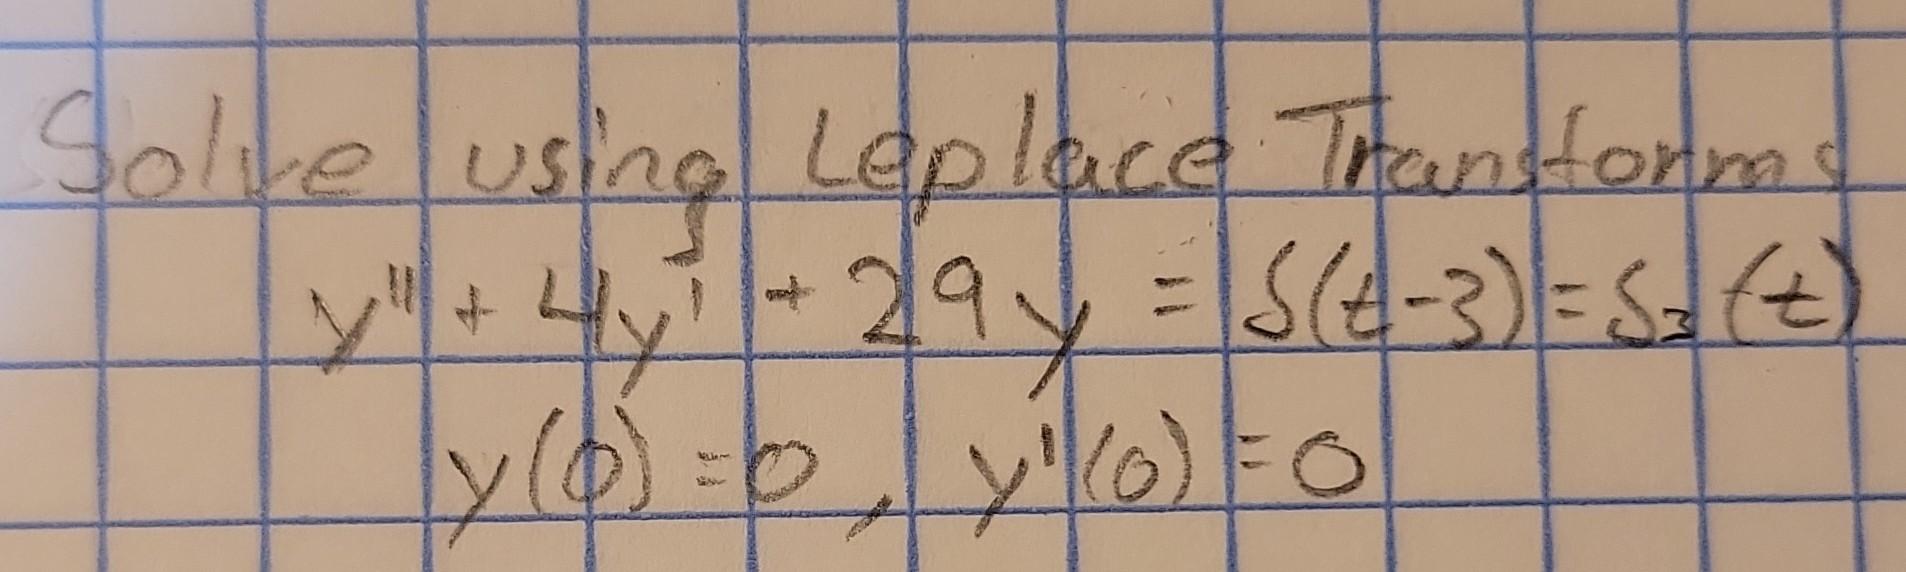 Solve using Leplace Transforms
y'' + 4y' + 29y = δ(t-3) = δ₃(t)
y(0) = 0, y'(0) = 0